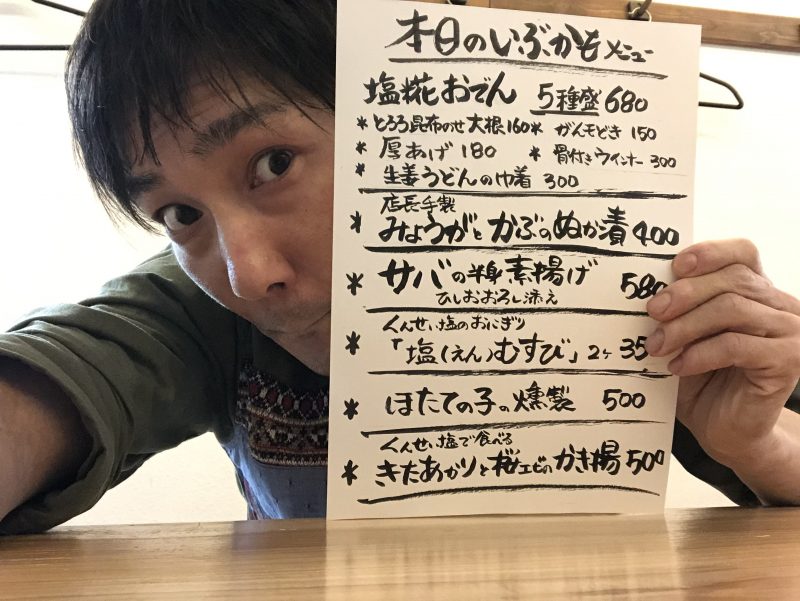 本日のいぶかもメニュー
塩糀おでん 5種盛 680
* とろろ昆布のせ大根 160 * がんもどき 150
* 厚あげ 180 * 骨付きウインナー 300
* 生姜うどんの巾着 300
店長手製
* みょうがとかぶのぬか漬 400
* サバの半身素揚げ 580
ひしおおろし添え
くんせい塩のおにぎり
* 「塩(えん)むすび」2ヶ 35
* ほたての子の燻製 500
くんせい塩で食べる
* きたあかりと桜エビのかき揚 500